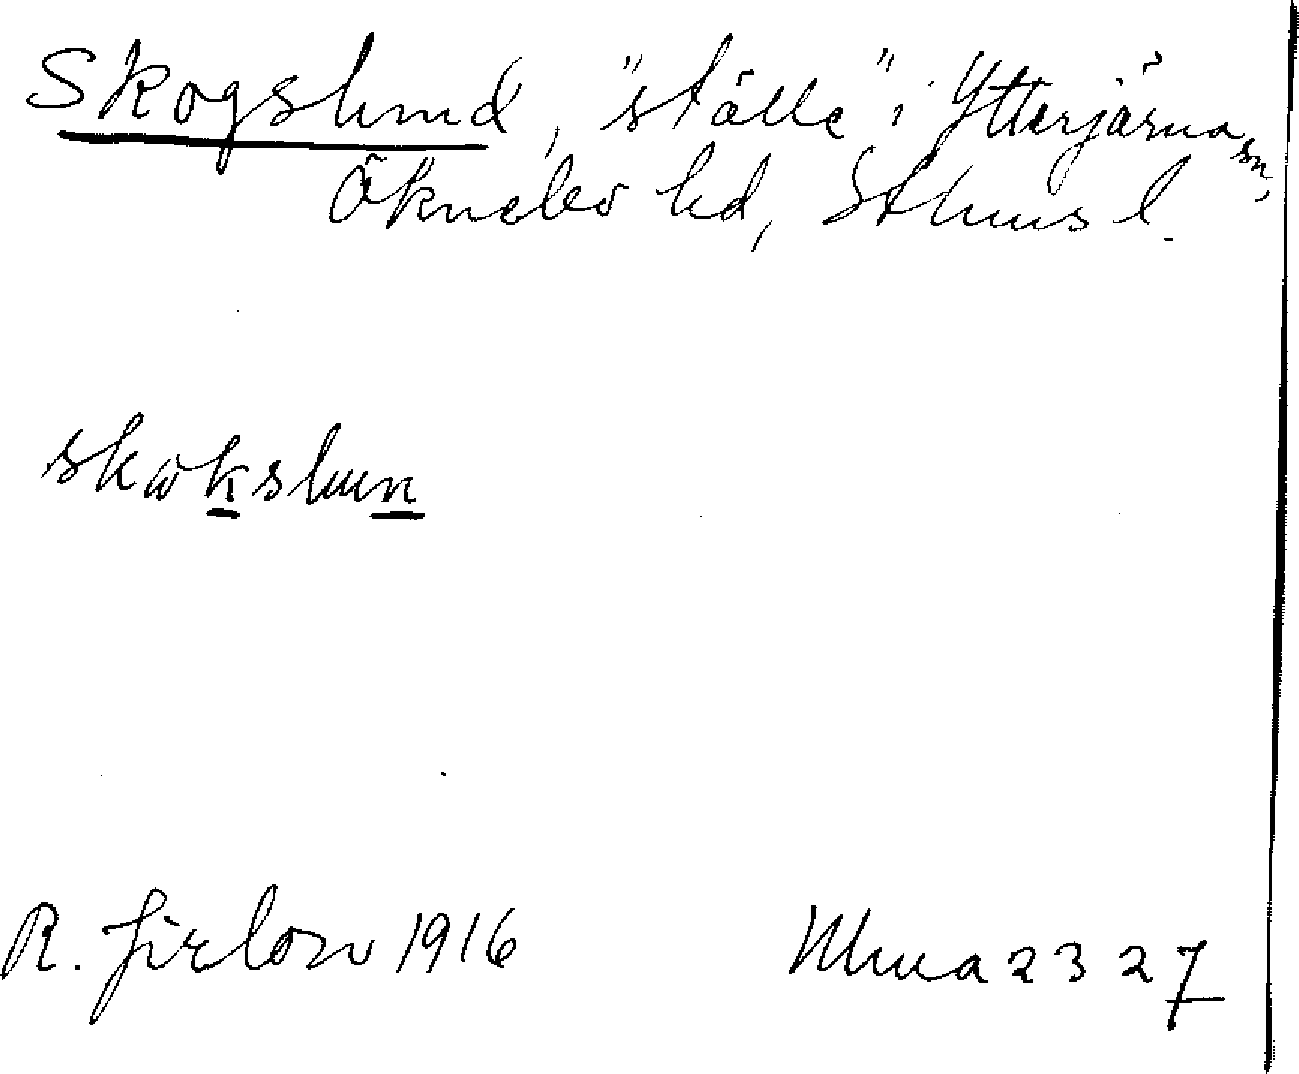 Skogslund, "ställe" i Ytterjärna sn,
Öknebo hd, Sthms l.
skωkslun
R. Jirlow 1916
Ulma 2327